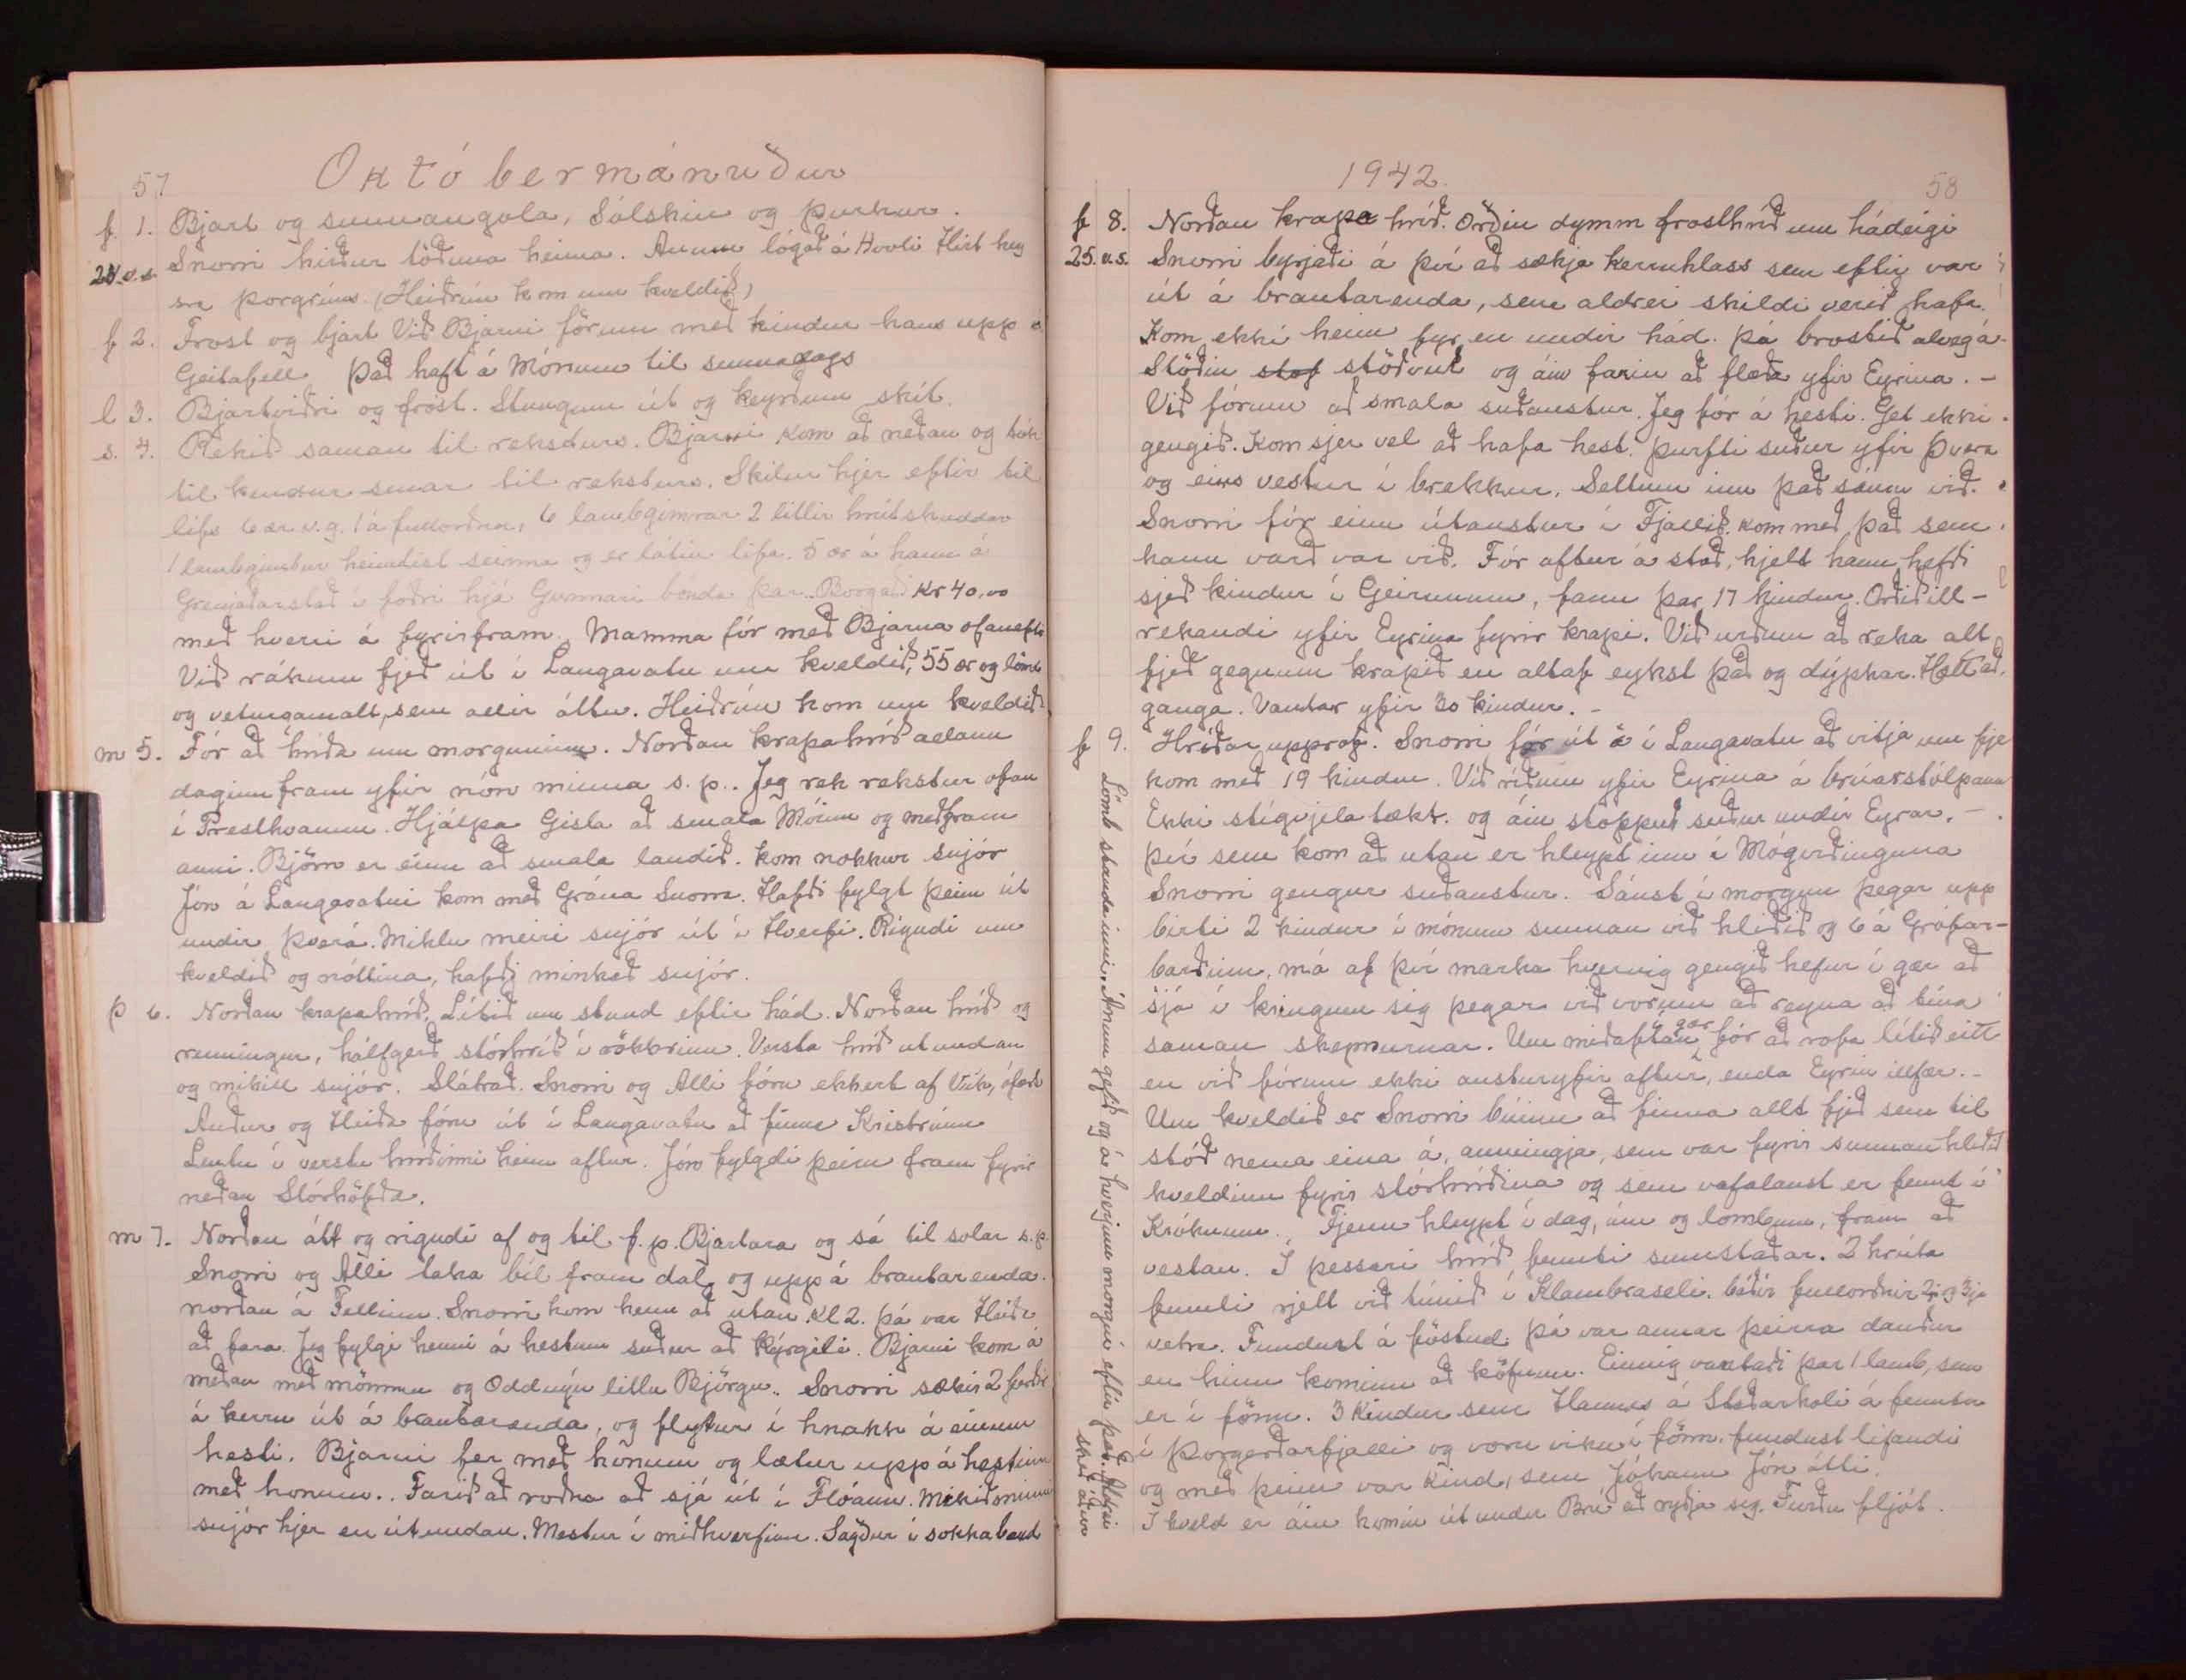 57
Októbermánuður
f. 1. Bjart og sunnangola, Sólskin og þurkur.
24.v.s. Snorri hirður töðuna heima. Ánum lógað á Hvoli Hirt hey
sra Þorgríms. (Heiðrún kom um kveldið)
f 2. Frost og bjart Við Bjarni förum með kindur hans upp á
Geitafell það haft á Mónum til sunnudags
l 3. Bjartviðri og frost. Stungum út og keyrðum skít.
s. 4. Rekið saman til reksturs. Bjarni kom að neðan og tók
til kindur sinar til reksturs. Skilur hjer eftir til
lifs 6 ær v.g. 1 á fullorðna, 6 lambgimrar 2 litlir hrútskuddar
1 lambgimbur heimtist seinna og er látin lifa. 5 ær á hann á
Grenjaðarstað í foðri hjá Gunnari bónda þar. Borgað Kr 40,00
með hverri á fyrirfram. Mamma fór með Bjarna ofaneftir
Við rákum fjeð út í Langavatn um kveldið, 55 ær og lömb
og veturgamalt, sem allir áttu. Heiðrún kom um kveldið
m 5. Fór að hríða um morguninn. Norðan krapahríð allann
daginn fram yfir nón minna s. p.. Jeg rek rekstur ofan
í Presthvamm. Hjálpa Gisla að smala Móinn og meðfram
anni. Björn er einn að smala landið. kom nokkur snjór
Jón á Langavatni kom með Grána Snorra. Hafði fylgt þeim út
undir Þverá. Miklu meiri snjór út í Hverfi. Rigndi um
kveldið og nóttina, hafði minkað snjór.
þ 6. Norðan krapahríð, Lítið um stund eftir hád. Norðan hríð og
renningur, hálfgerð stórhríð í rökkrinu. Versta hríð utundan
og mikill snjór. Slátrað. Snorri og Alli fóru ekkert af Vík, ófært
Auður og Heiða fóru út í Langavatn að finna Kristrúnu
Lentu í verstu hríðinni heim aftur. Jón fylgdi þeim fram fyrir
neðan Stórhöfða.
m 7. Norðan átt og rigndi af og til f. p. Bjartara og sá til solar s.p.
Snorri og Alli taka bíl fram dal og upp á brautarenda.
norðan á Fellinu. Snorri kom heim að utan. Kl 2. þá var Heiða
að fara. Jeg fylgi henni á hestum suður að Kýrgili. Bjarni kom á
meðan með mömmu og Oddnýu litlu Björgu. Snorri sækir 2 ferðir
á kerru út á brautarenda, og flytur í hnakk á einum
hesti. Bjarni fer með honum og lætur upp á hestinn
með honum.. Farið að roðna að sjá út í Flóann. Mikið minni
snjór hjer en útundan. Mestur í miðhverfinu. Sagður í sokkaband
1942.
58
f 8. Norðan krapa hríð. Orðin dymm frosthríð um hádeigi
25. v.s. Snorri byrjaði á því að sækja kerruhlass sem eftir var
út á brautarenda, sem aldrei skildi verið hafa.
Kom ekki heim fyr en undir hád. þá brostið alveg á.
Stöðin stöðvuð og áin farin að flæða yfir Eyrina. –
Við fórum að smala suðaustur. Jeg fór á hesti. Get ekki
gengið. Kom sjer vel að hafa hest. þurfti suður yfir Þvera
og eins vestur í brekkur. Settum inn það sáum við.
Snorri fór einn útaustur í Fjallið. kom með það sem
hann varð var við. Fór aftur á stað, hjelt hann hefði
sjeð kindur í Geirunum, fann þar 17 kindur. Orðið ill-
rekandi yfir Eyrina fyrir krapi. Við urðum að reka alt
fjeð gegnum krapið en altaf eykst það og dýpkar. Hætt að
ganga. Vantar yfir 30 kindur. –
f 9. Hríðar upprof. Snorri fór út á í Langavatn að vitja um fje
kom með 19 kindur. Við riðum yfir Eyrina á brúarstólpann
Ekki stigvjela tækt. og áin stoppuð suður undir Eyrar. –
því sem kom að utan er hleypt inn í Mógirðinguna
Snorri gengur suðaustur. Sáust í morgun þegar upp
birti 2 kindur í mónum sunnan við hliðið og 6 á Grafar-
barðinu, má af því marka hvernig gengið hefur í gær að
sjá í kringum sig þegar við vorum að reyna að tína
saman skepnurnar. Um miðaftan í gær fór að rofa lítið eitt
en við fórum ekki austuryfir aftur, enda Eyrin illfær. –
Um kveldið er Snorri búinn að finna allt fjeð sem til
stóð nema eina á, aumingja, sem var fyrir sunnan hliðið
kveldinu fyrir stórhríðina og sem vafalaust er fennt í
Króknum. Fjenu hleypt í dag, ám og lömbum, fram að
vestan. I þessari hríð fennti sumstaðar. 2 hrúta
fennti rjett við túnið í Klambraseli. báðir fullorðnir 2 og 3ja
vetra. Fundust á föstud. þá var annar þeirra dauður
en hinn kominn að köfnun. Einnig vantaði þar 1 lamb, sem
er í fönn. 3 Kindur sem Hannes á Staðarholi á fennta
í Þorgerðarfjalli og voru viku í fönn. fundust lifandi
og með þeim var Kind, sem Jóhann Jón átti.
I kveld er áin komin út undir Brú að ryðja sig. Furðu fljót.
Lömb standa inni, Ánum gefið og á hverjum morgni eftir það. Aldrei
skeð áður